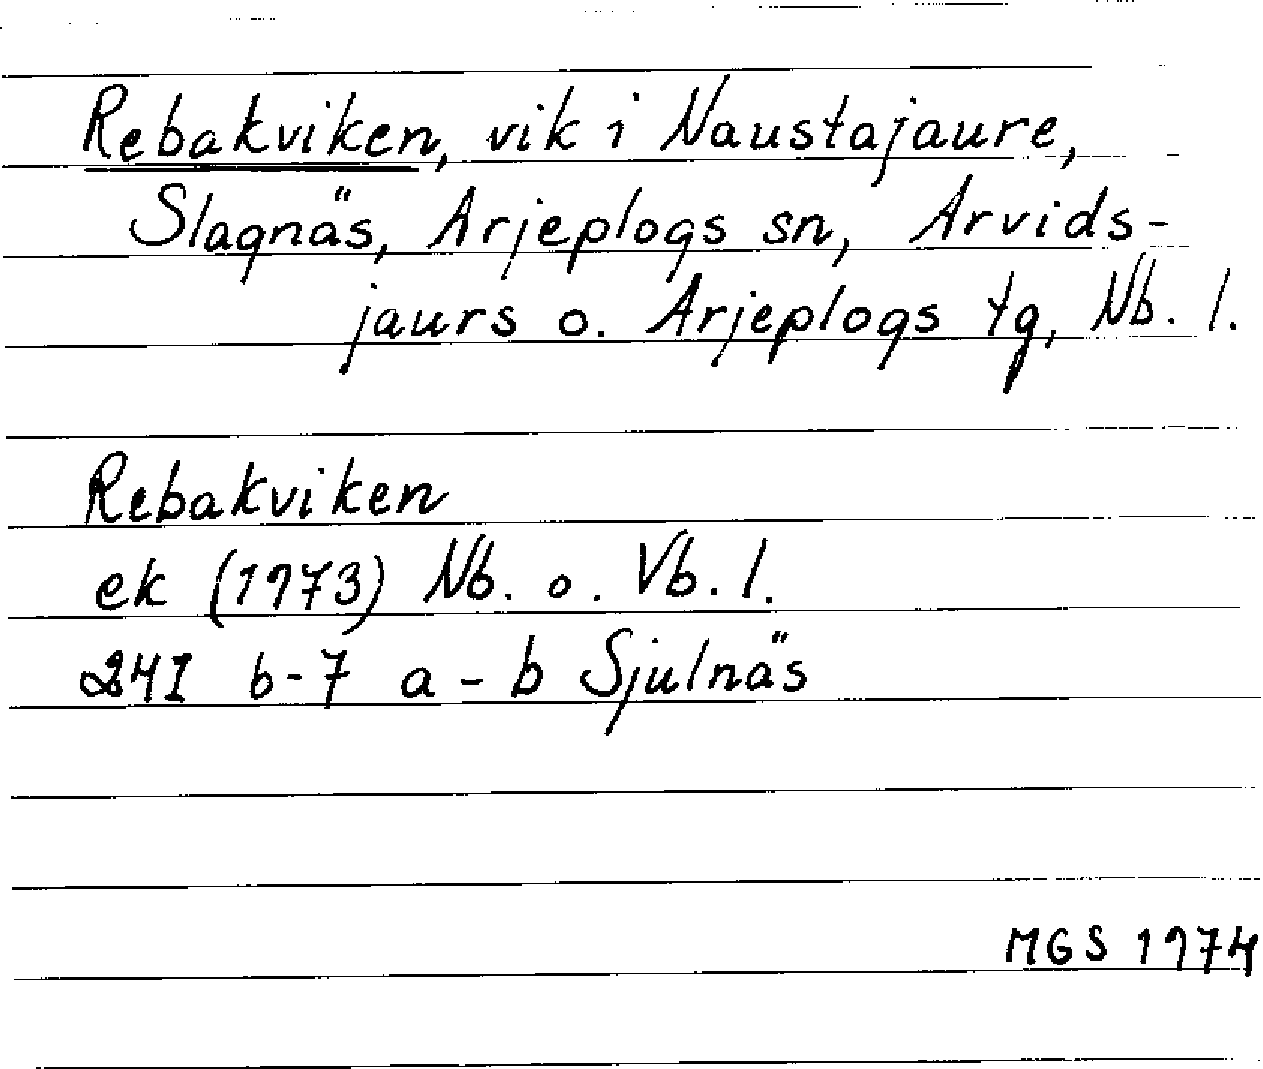 Rebakviken, vik i Naustajaure,
Slagnäs, Arjeplogs sn, Arvids-
jaurs o. Arjeplogs tg, Nb. l.
Rebakviken
ek (1973) Nb. o. Vb. l.
24I b-7 a-b Sjulnäs
MGS 1974